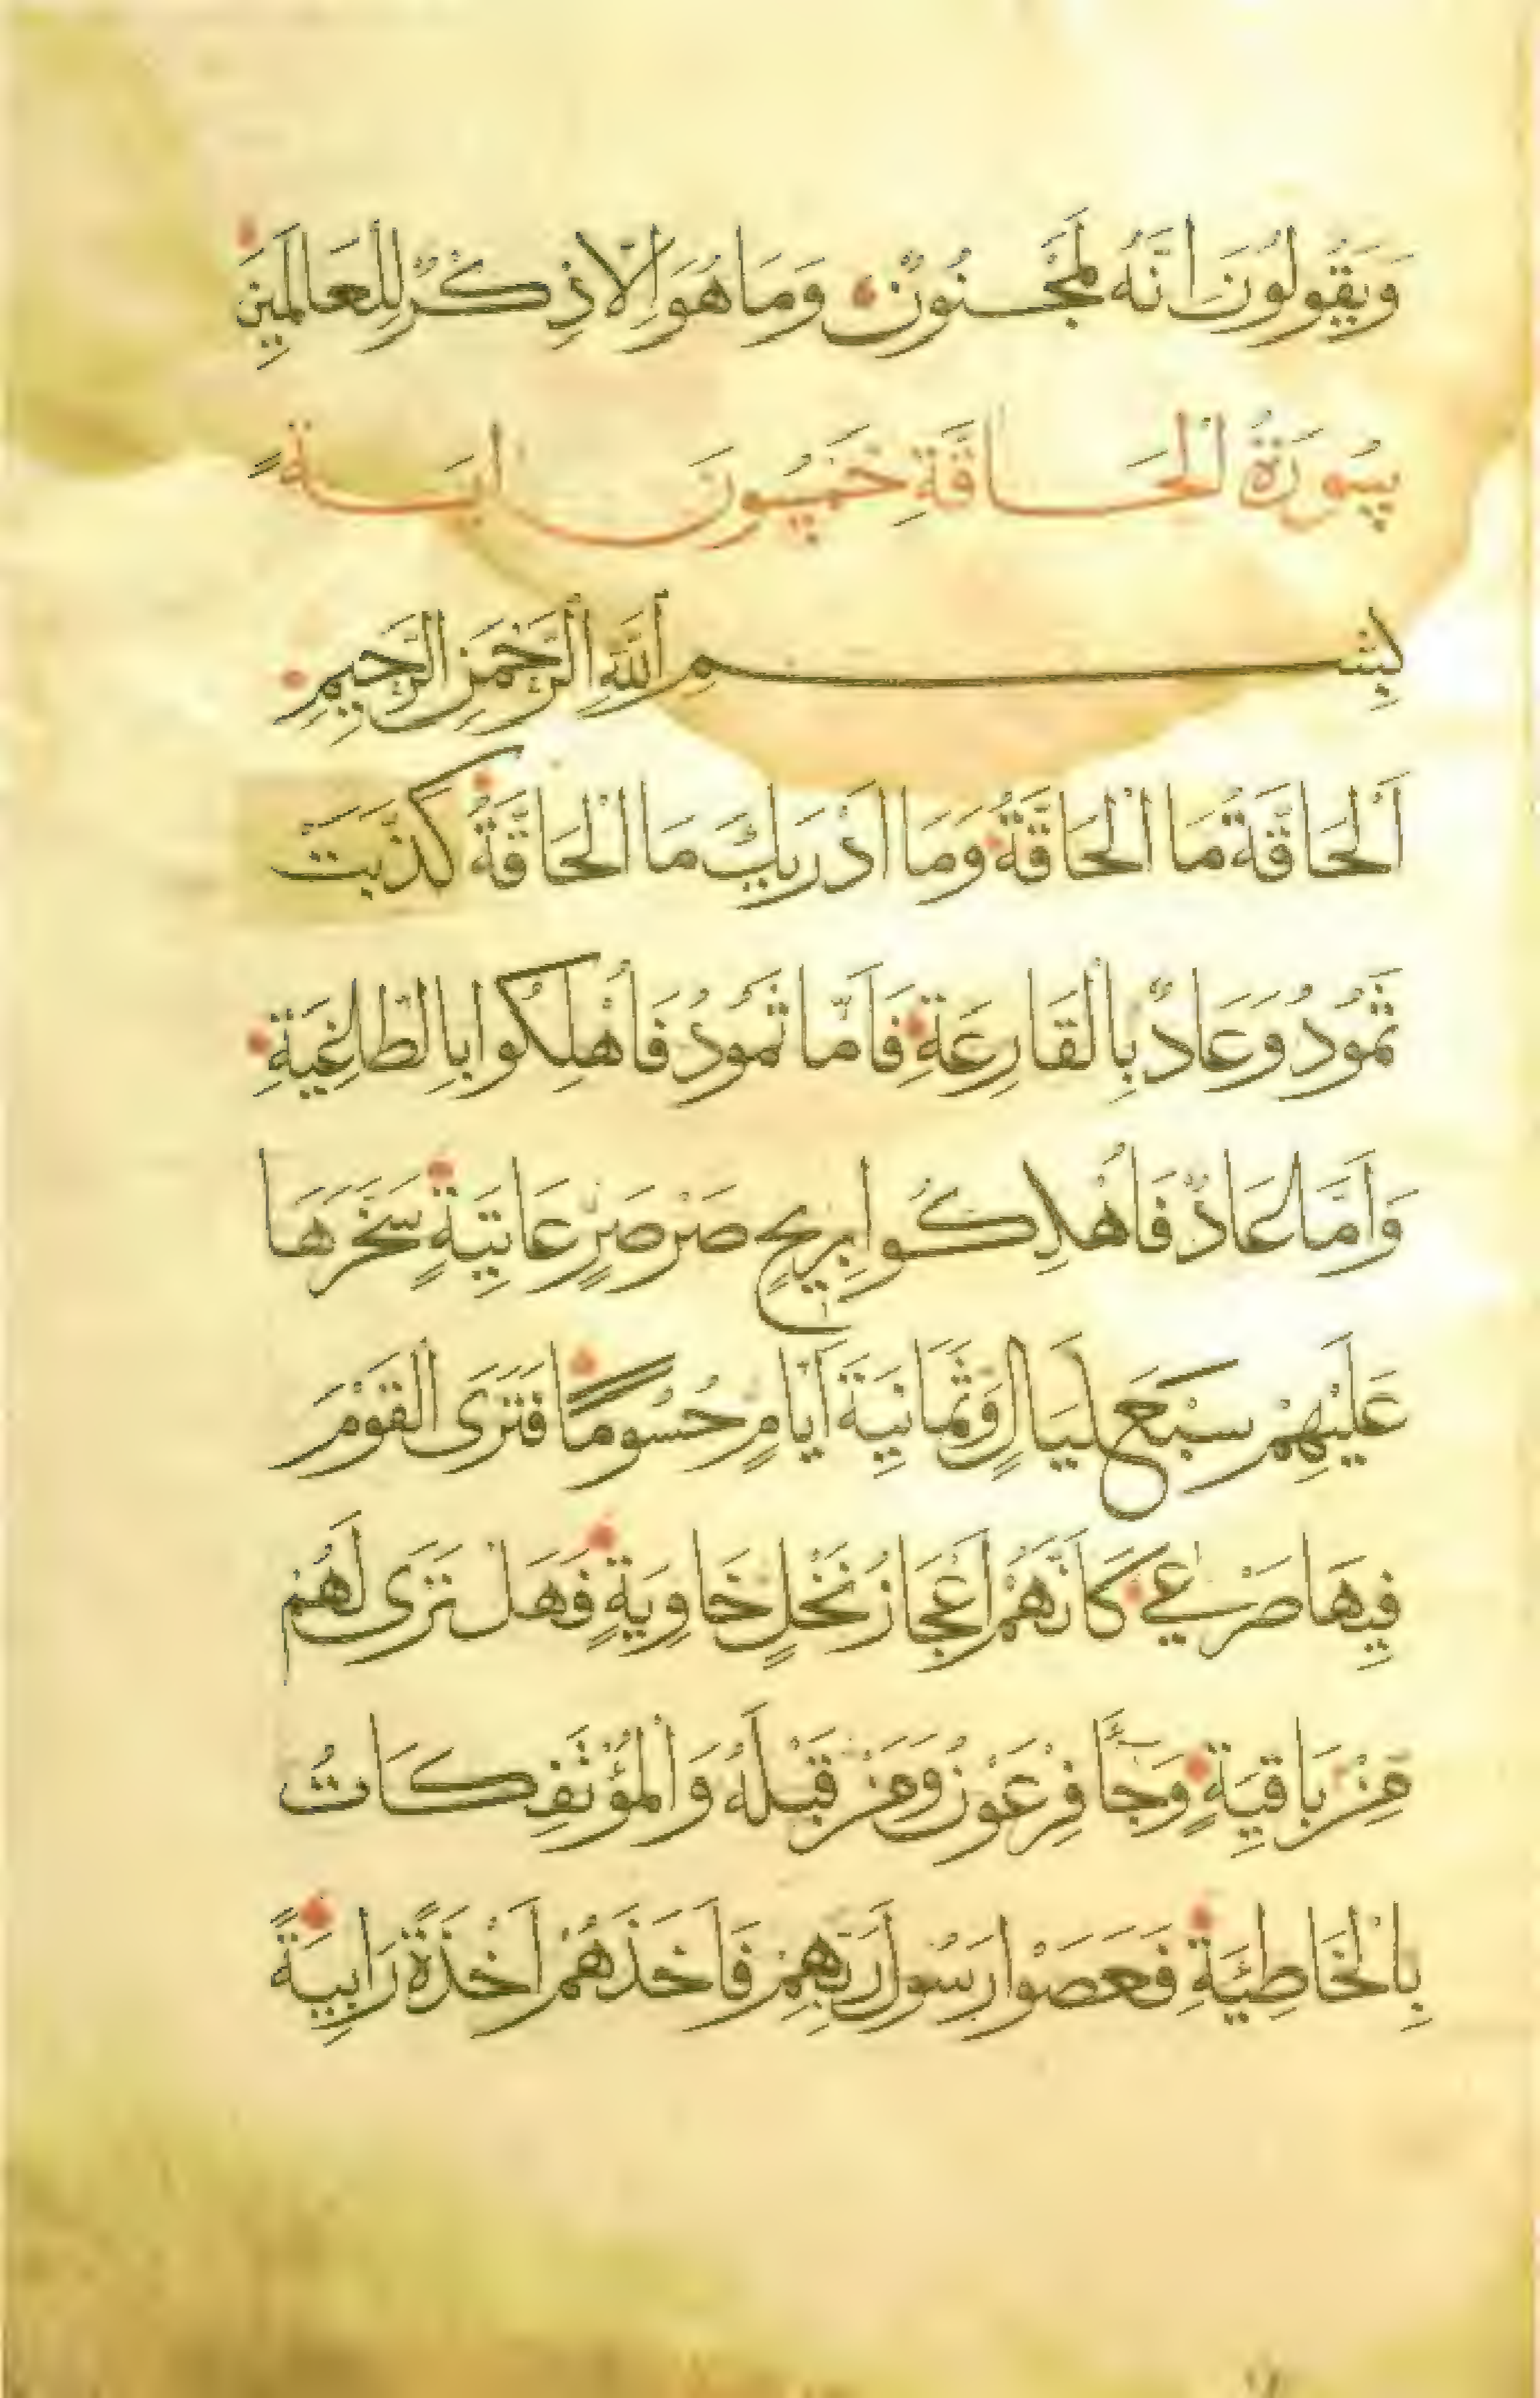 وَيَقُولُونَ اِنَّهُ لَمَجْنُونٌ وَمَا هُوَ اِلَّا ذِكْرٌ لِلْعَالَمِينَ
سُورَةُ الْحَاقَّةِ خَمْسُونَ ايَةً
بِسْمِ اللَّهِ الرَّحْمَنِ الرَّحِيمِ
اَلْحَاقَّةُ مَا الْحَاقَّةُ وَمَا اَدْرَيكَ مَا الْحَاقَّةُ كَذَّبَتْ
ثَمُودُ وَعَادٌ بِالْقَارِعَةِ فَاَمَّا ثَمُودُ فَاُهْلِكُوا بِالطَّاغِيَةِ
وَاَمَّا عَادٌ فَاُهْلِكُوا بِرِيحٍ صَرْصَرٍ عَاتِيَةٍ سَخَّرَهَا
عَلَيْهِمْ سَبْعَ لَيَالٍ وَثَمَانِيَةَ اَيَّامٍ حُسُومًا فَتَرَى الْقَوْمَ
فِيهَا صَرْعَى كَاَنَّهُمْ اَعْجَازُ نَخْلٍ خَاوِيَةٍ فَهَلْ تَرَى لَهُمْ
مِنْ بَاقِيَةٍ وَجَاءَ فِرْعَوْنُ وَمَنْ قَبْلَهُ وَالْمُؤْتَفِكَاتُ
بِالْخَاطِئَةِ فَعَصَوْا رَسُولَ رَبِّهِمْ فَاَخَذَهُمْ اَخْذَةً رَابِيَةً